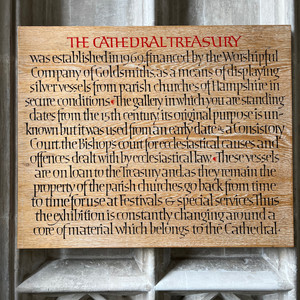 THE CATHEDRAL TREASURY
was established in 1969, financed by the Worshipful
Company of Goldsmiths, as a means of displaying
silver vessels from parish churches of Hampshire in
secure conditions • The gallery in which you are standing
dates from the 15th century, its original purpose is un-
known but it was used from an early date as a Consistory
Court, the Bishop's court for ecclesiastical causes and
offences dealt with by ecclesiastical law. • These vessels
are on loan to the Treasury and, as they remain the
property of the parish churches go back from time
to time for use at Festivals & special services. Thus
the exhibition is constantly changing around a
core of material which belongs to the Cathedral.